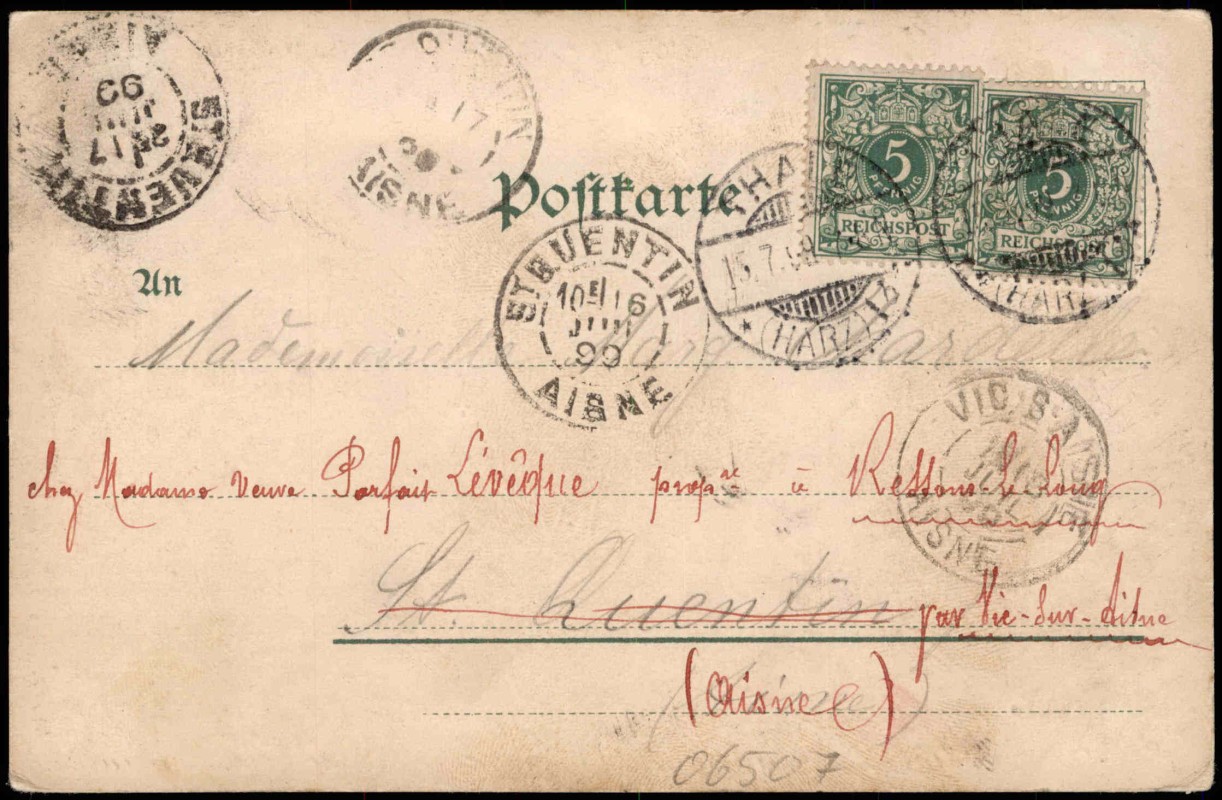 5
PFENNIG
REICHSPOST
5
PFENNIG
REICHSPOST
Postkarte
An
ST QUENTIN
99
ST QUENTIN
AISNE
17
ST QUENTIN
10E 16
JUIL
99
AISNE
15.7.99
*(HARZ)
(HARZ)
VIC S. AISNE
AISNE
Mademoiselle
chez Madame veuve Parfait Lévêque propre à Ressons le Long
St. Quentin par Vic-sur-Aisne
(Aisne)
06507